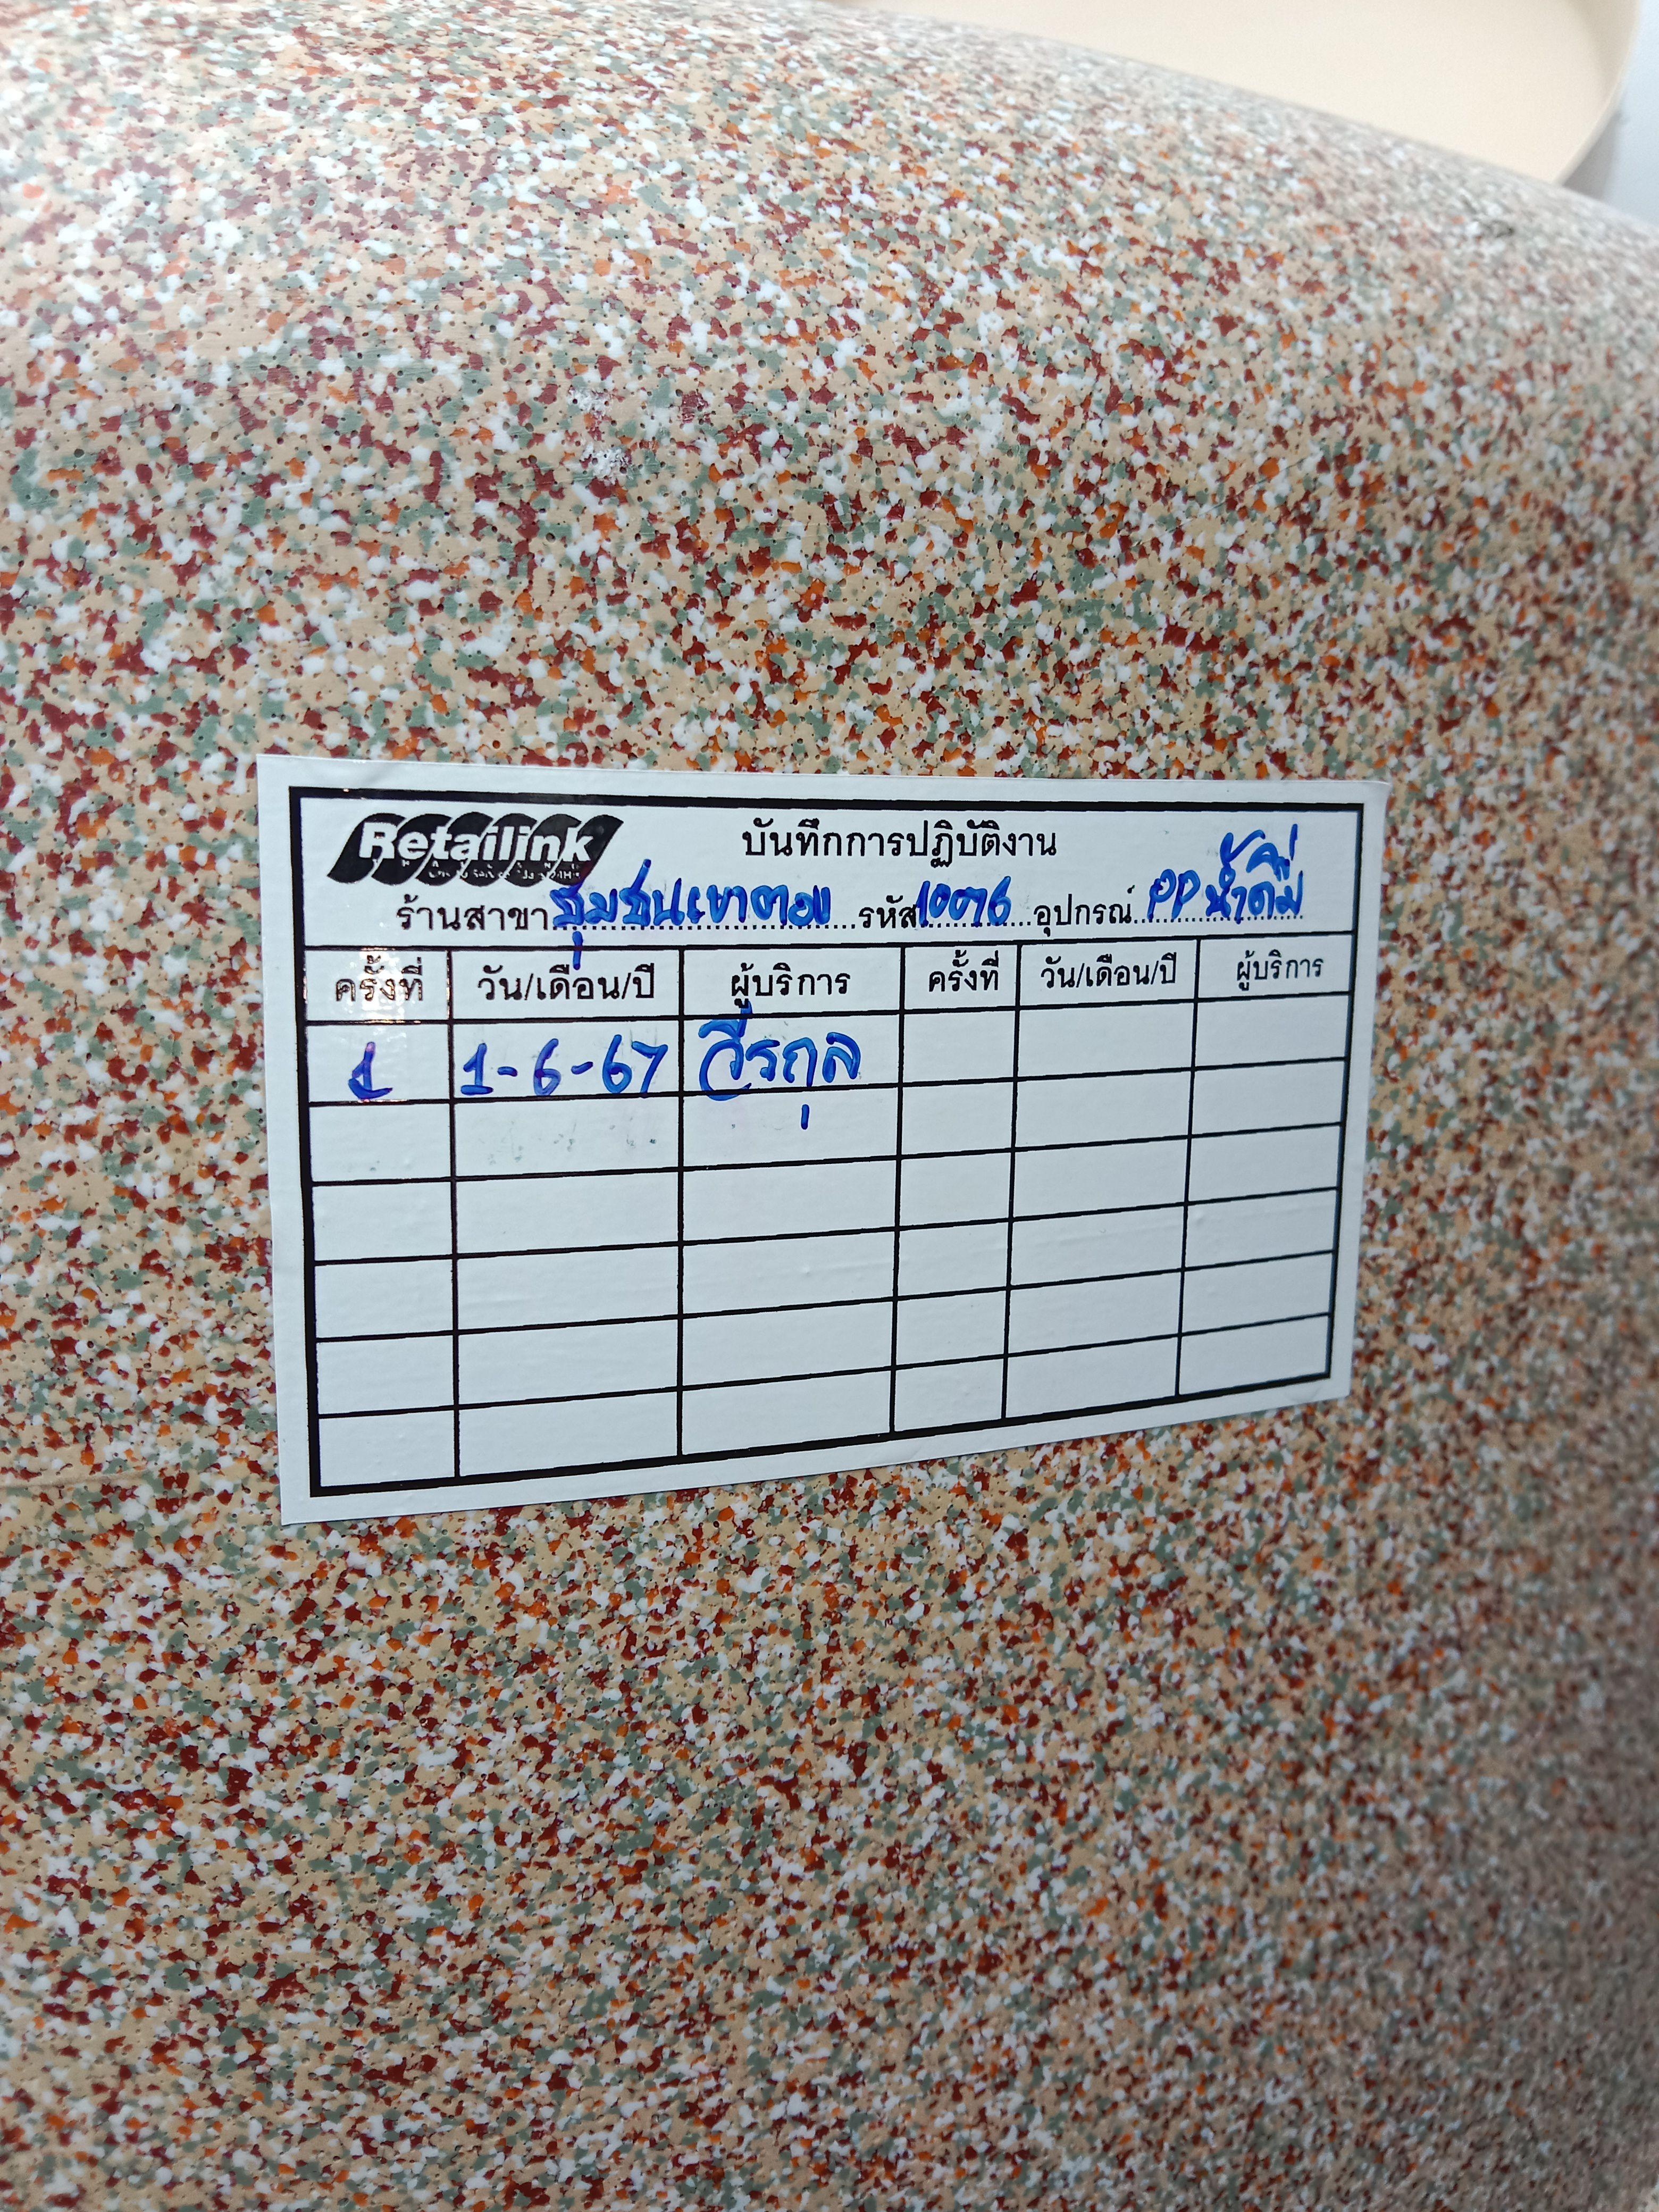 Retailink
บันทึกการปฏิบัติงาน
ร้านสาขา ชุมชนเขาตอง รหัส 10076 อุปกรณ์ PP น้ำดื่ม
ครั้งที่ วัน/เดือน/ปี ผู้บริการ ครั้งที่ วัน/เดือน/ปี ผู้บริการ
1 1-6-67 วีรกุล